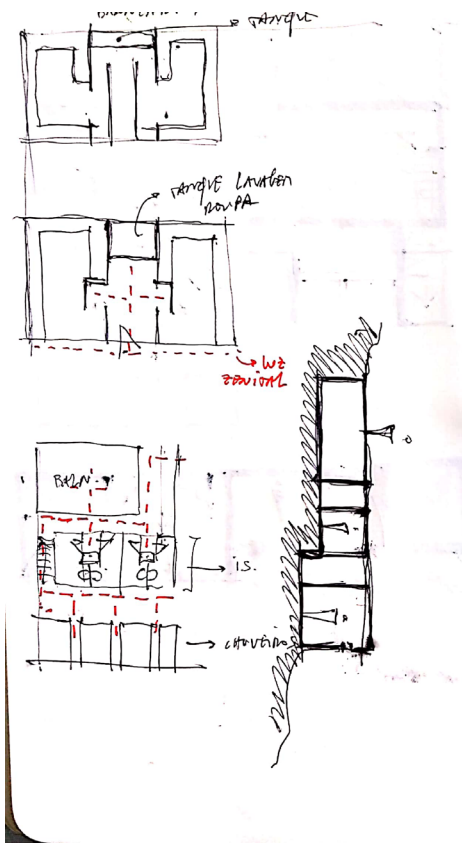 TANQUE
TANQUE LAVAGEM
ROUPA
LUZ
ZENITAL
BALN.
I.S.
CHUVEIRO